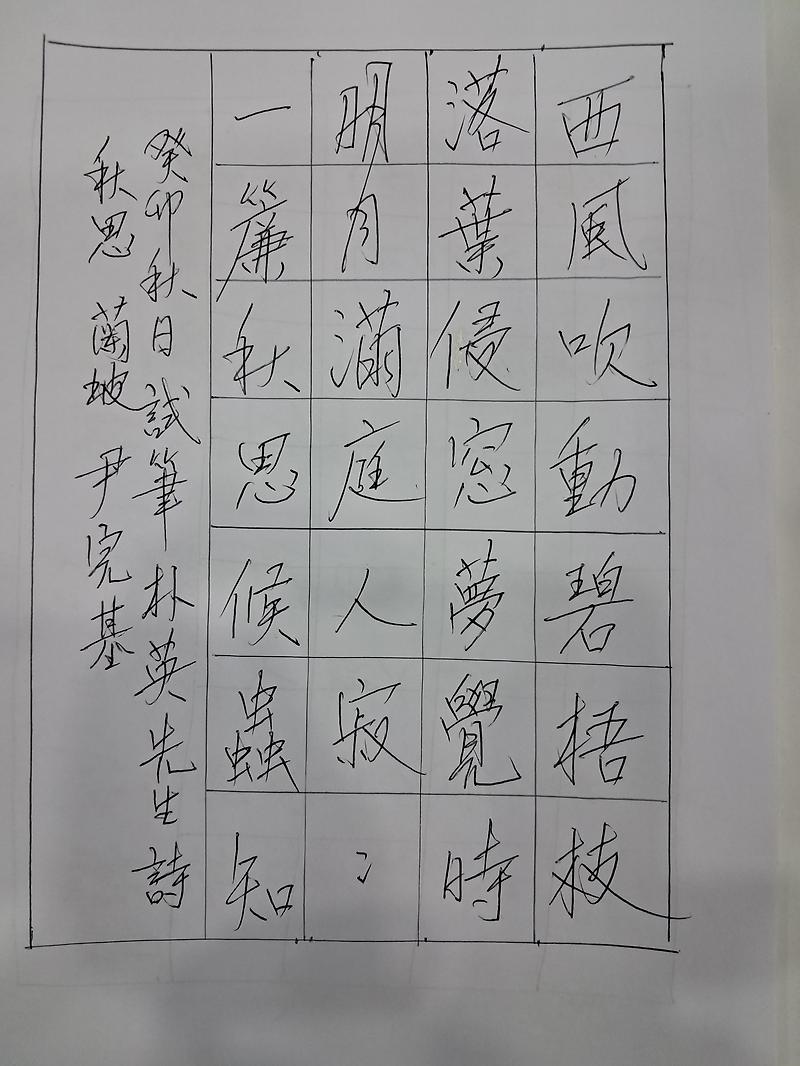 西風吹動碧梧枝
落葉侵窓夢覺時
明月滿庭人寂〻
一簾秋思候蟲知
癸卯秋日試筆朴英先生詩
秋思 蘭坡 尹完基